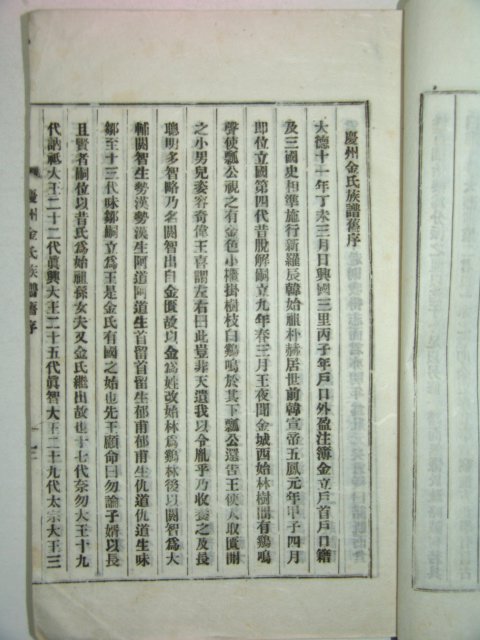 慶州金氏族譜舊序
大德十一年丁未三月日興國三里丙子年戶口外盈注簿金立戶首戶口籍
及三國史相準施行新羅辰韓始祖朴赫居世前韓宣帝五鳳元年甲子四月
即位立國第四代昔脫解嗣立九年春三月王夜聞金城西始林樹間有鷄鳴
聲使瓢公視之有金色小樻掛樹枝白鷄鳴於其下瓢公還告王使人取匱開
之小男兒姿容奇偉王喜謂左右曰此豈非天遺我以令胤乎乃收養之及長
聰明多智略乃名閼智出自金匱故以金爲姓改始林爲鷄林後以閼智爲大
輔閼智生勢漢勢漢生阿道阿道生首留首留生郁甫郁甫生仇道仇道生味
鄒至十三代味鄒嗣立爲王是金氏有國之始也先王顧命曰勿論子婿以長
且賢者嗣位以昔氏爲始祖孫女夫又金氏繼出故也十七代奈勿大王十九
代訥祗大王二十二代眞興大王二十五代眞智大王二十九代太宗大王三
慶州金氏族譜舊序